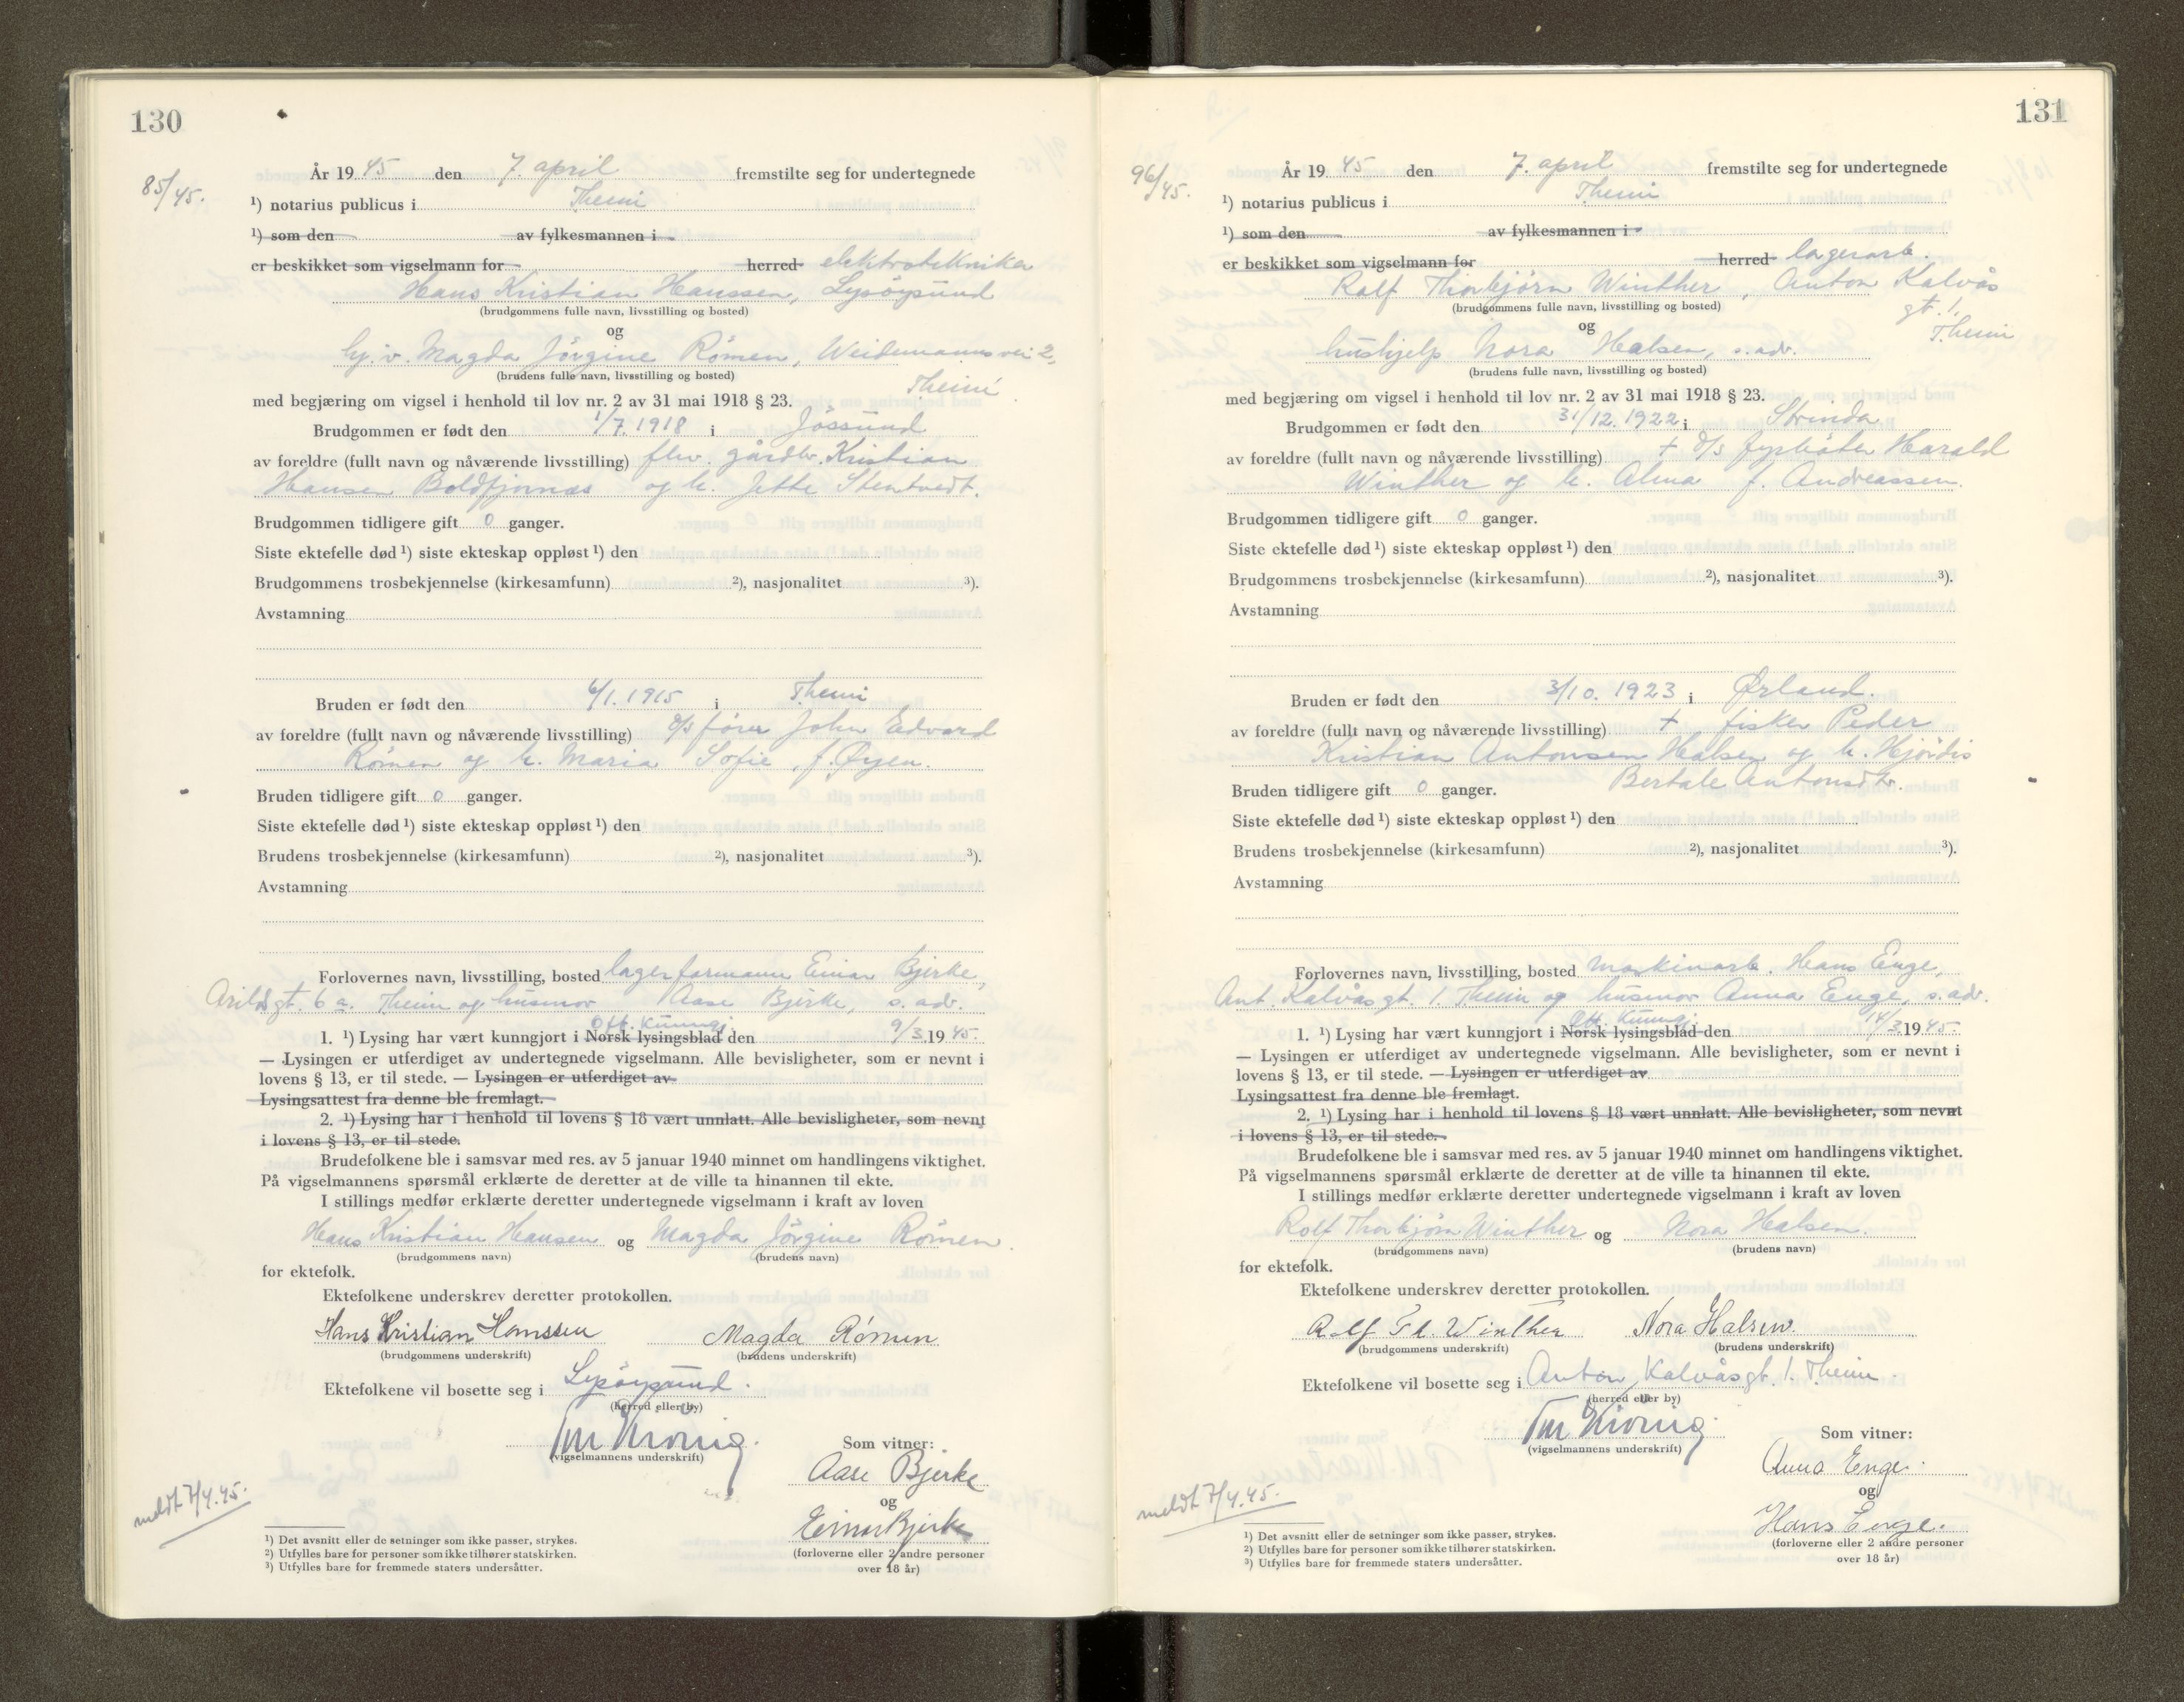 130
85/45.
År 1945 den 7. april fremstilte seg for undertegnede
¹) notarius publicus i Theim
¹) som den av fylkesmannen i
er beskikket som vigselmann for herred elektrotekniker
Hans Kristian Hanssen, Lysöysund
(brudgommens fulle navn, livsstilling og bosted)
og
hj. v. Magda Jörgine Römen, Weidemannsvei 2,
(brudens fulle navn, livsstilling og bosted)
Theim
med begjæring om vigsel i henhold til lov nr. 2 av 31 mai 1918 § 23.
Brudgommen er født den 1/7. 1918 i Jössund
av foreldre (fullt navn og nåværende livsstilling) fhv. gårdbr. Kristian
Hansen Boldfjornæs og h. Jette Stentvedt.
Brudgommen tidligere gift 0 ganger.
Siste ektefelle død ¹) siste ekteskap oppløst ¹) den
Brudgommens trosbekjennelse (kirkesamfunn) ²), nasjonalitet ³).
Avstamning
Bruden er født den 6/1. 1915 i Theim
av foreldre (fullt navn og nåværende livsstilling) d/s fører John Edvard
Römen og h. Maria Sofie, f. Øyen.
Bruden tidligere gift 0 ganger.
Siste ektefelle død ¹) siste ekteskap oppløst ¹) den
Brudens trosbekjennelse (kirkesamfunn) ²), nasjonalitet ³).
Avstamning
Forlovernes navn, livsstilling, bosted lagerformann Einar Bjerke,
Arildsgt. 6 a. Theim og husmor Aase Bjerke, s. adr.
Off. kunngj.
1. ¹) Lysing har vært kunngjort i Norsk lysingsblad den 9/3 1945.
— Lysingen er utferdiget av undertegnede vigselmann. Alle bevisligheter, som er nevnt i
lovens § 13, er til stede. — Lysingen er utferdiget av
Lysingsattest fra denne ble fremlagt.
2. ¹) Lysing har i henhold til lovens § 18 vært unnlatt. Alle bevisligheter, som nevnt
i lovens § 13, er til stede.
Brudefolkene ble i samsvar med res. av 5 januar 1940 minnet om handlingens viktighet.
På vigselmannens spørsmål erklærte de deretter at de ville ta hinannen til ekte.
I stillings medfør erklærte deretter undertegnede vigselmann i kraft av loven
Hans Kristian Hansen og Magda Jörgine Römen.
(brudgommens navn) (brudens navn)
for ektefolk.
Ektefolkene underskrev deretter protokollen.
Hans Kristian Hanssen Magda Römen
(brudgommens underskrift) (brudens underskrift)
Ektefolkene vil bosette seg i Lysöysund.
(herred eller by)
(vigselmannens underskrift)
Som vitner:
Aase Bjerke
og
Einar Bjerke
(forloverne eller 2 andre personer
over 18 år)
meldt 7/4.45.
¹) Det avsnitt eller de setninger som ikke passer, strykes.
²) Utfylles bare for personer som ikke tilhører statskirken.
³) Utfylles bare for fremmede staters undersåtter.
131
96/45.
År 1945 den 7. april fremstilte seg for undertegnede
¹) notarius publicus i Theim
¹) som den av fylkesmannen i
er beskikket som vigselmann for herred lagerarb.
Rolf Thorbjörn Winther, Anton Kalvås
gt. 1.
Theim
(brudgommens fulle navn, livsstilling og bosted)
og
hushjelp Nora Halsen, s. adr.
(brudens fulle navn, livsstilling og bosted)
med begjæring om vigsel i henhold til lov nr. 2 av 31 mai 1918 § 23.
Brudgommen er født den 31/12. 1922 i Strinda
av foreldre (fullt navn og nåværende livsstilling) + d/s fyrbøter Harald
Winther og h. Alma f. Andreassen.
Brudgommen tidligere gift 0 ganger.
Siste ektefelle død ¹) siste ekteskap oppløst ¹) den
Brudgommens trosbekjennelse (kirkesamfunn) ²), nasjonalitet ³).
Avstamning
Bruden er født den 3/10. 1923 i Ørland.
av foreldre (fullt navn og nåværende livsstilling) + fisker Peder
Kristian Antonsen Halsen og h. Hjördis
Bertale Antonsdtr.
Bruden tidligere gift 0 ganger.
Siste ektefelle død ¹) siste ekteskap oppløst ¹) den
Brudens trosbekjennelse (kirkesamfunn) ²), nasjonalitet ³).
Avstamning
Forlovernes navn, livsstilling, bosted maskinarb. Hans Enge,
Ant. Kalvåsgt. 1. Theim og husmor Anna Enge, s. adr.
Off. kunngj.
1. ¹) Lysing har vært kunngjort i Norsk lysingsblad den 14/3 1945.
— Lysingen er utferdiget av undertegnede vigselmann. Alle bevisligheter, som er nevnt i
lovens § 13, er til stede. — Lysingen er utferdiget av
Lysingsattest fra denne ble fremlagt.
2. ¹) Lysing har i henhold til lovens § 18 vært unnlatt. Alle bevisligheter, som nevnt
i lovens § 13, er til stede.
Brudefolkene ble i samsvar med res. av 5 januar 1940 minnet om handlingens viktighet.
På vigselmannens spørsmål erklærte de deretter at de ville ta hinannen til ekte.
I stillings medfør erklærte deretter undertegnede vigselmann i kraft av loven
Rolf Thorbjörn Winther og Nora Halsen.
(brudgommens navn) (brudens navn)
for ektefolk.
Ektefolkene underskrev deretter protokollen.
Rolf Th. Winther Nora Halsen.
(brudgommens underskrift) (brudens underskrift)
Ektefolkene vil bosette seg i Anton Kalvåsgt. 1. Theim.
(herred eller by)
(vigselmannens underskrift)
Som vitner:
Anna Enge.
og
Hans Enge.
(forloverne eller 2 andre personer
over 18 år)
meldt 7/4.45.
¹) Det avsnitt eller de setninger som ikke passer, strykes.
²) Utfylles bare for personer som ikke tilhører statskirken.
³) Utfylles bare for fremmede staters undersåtter.